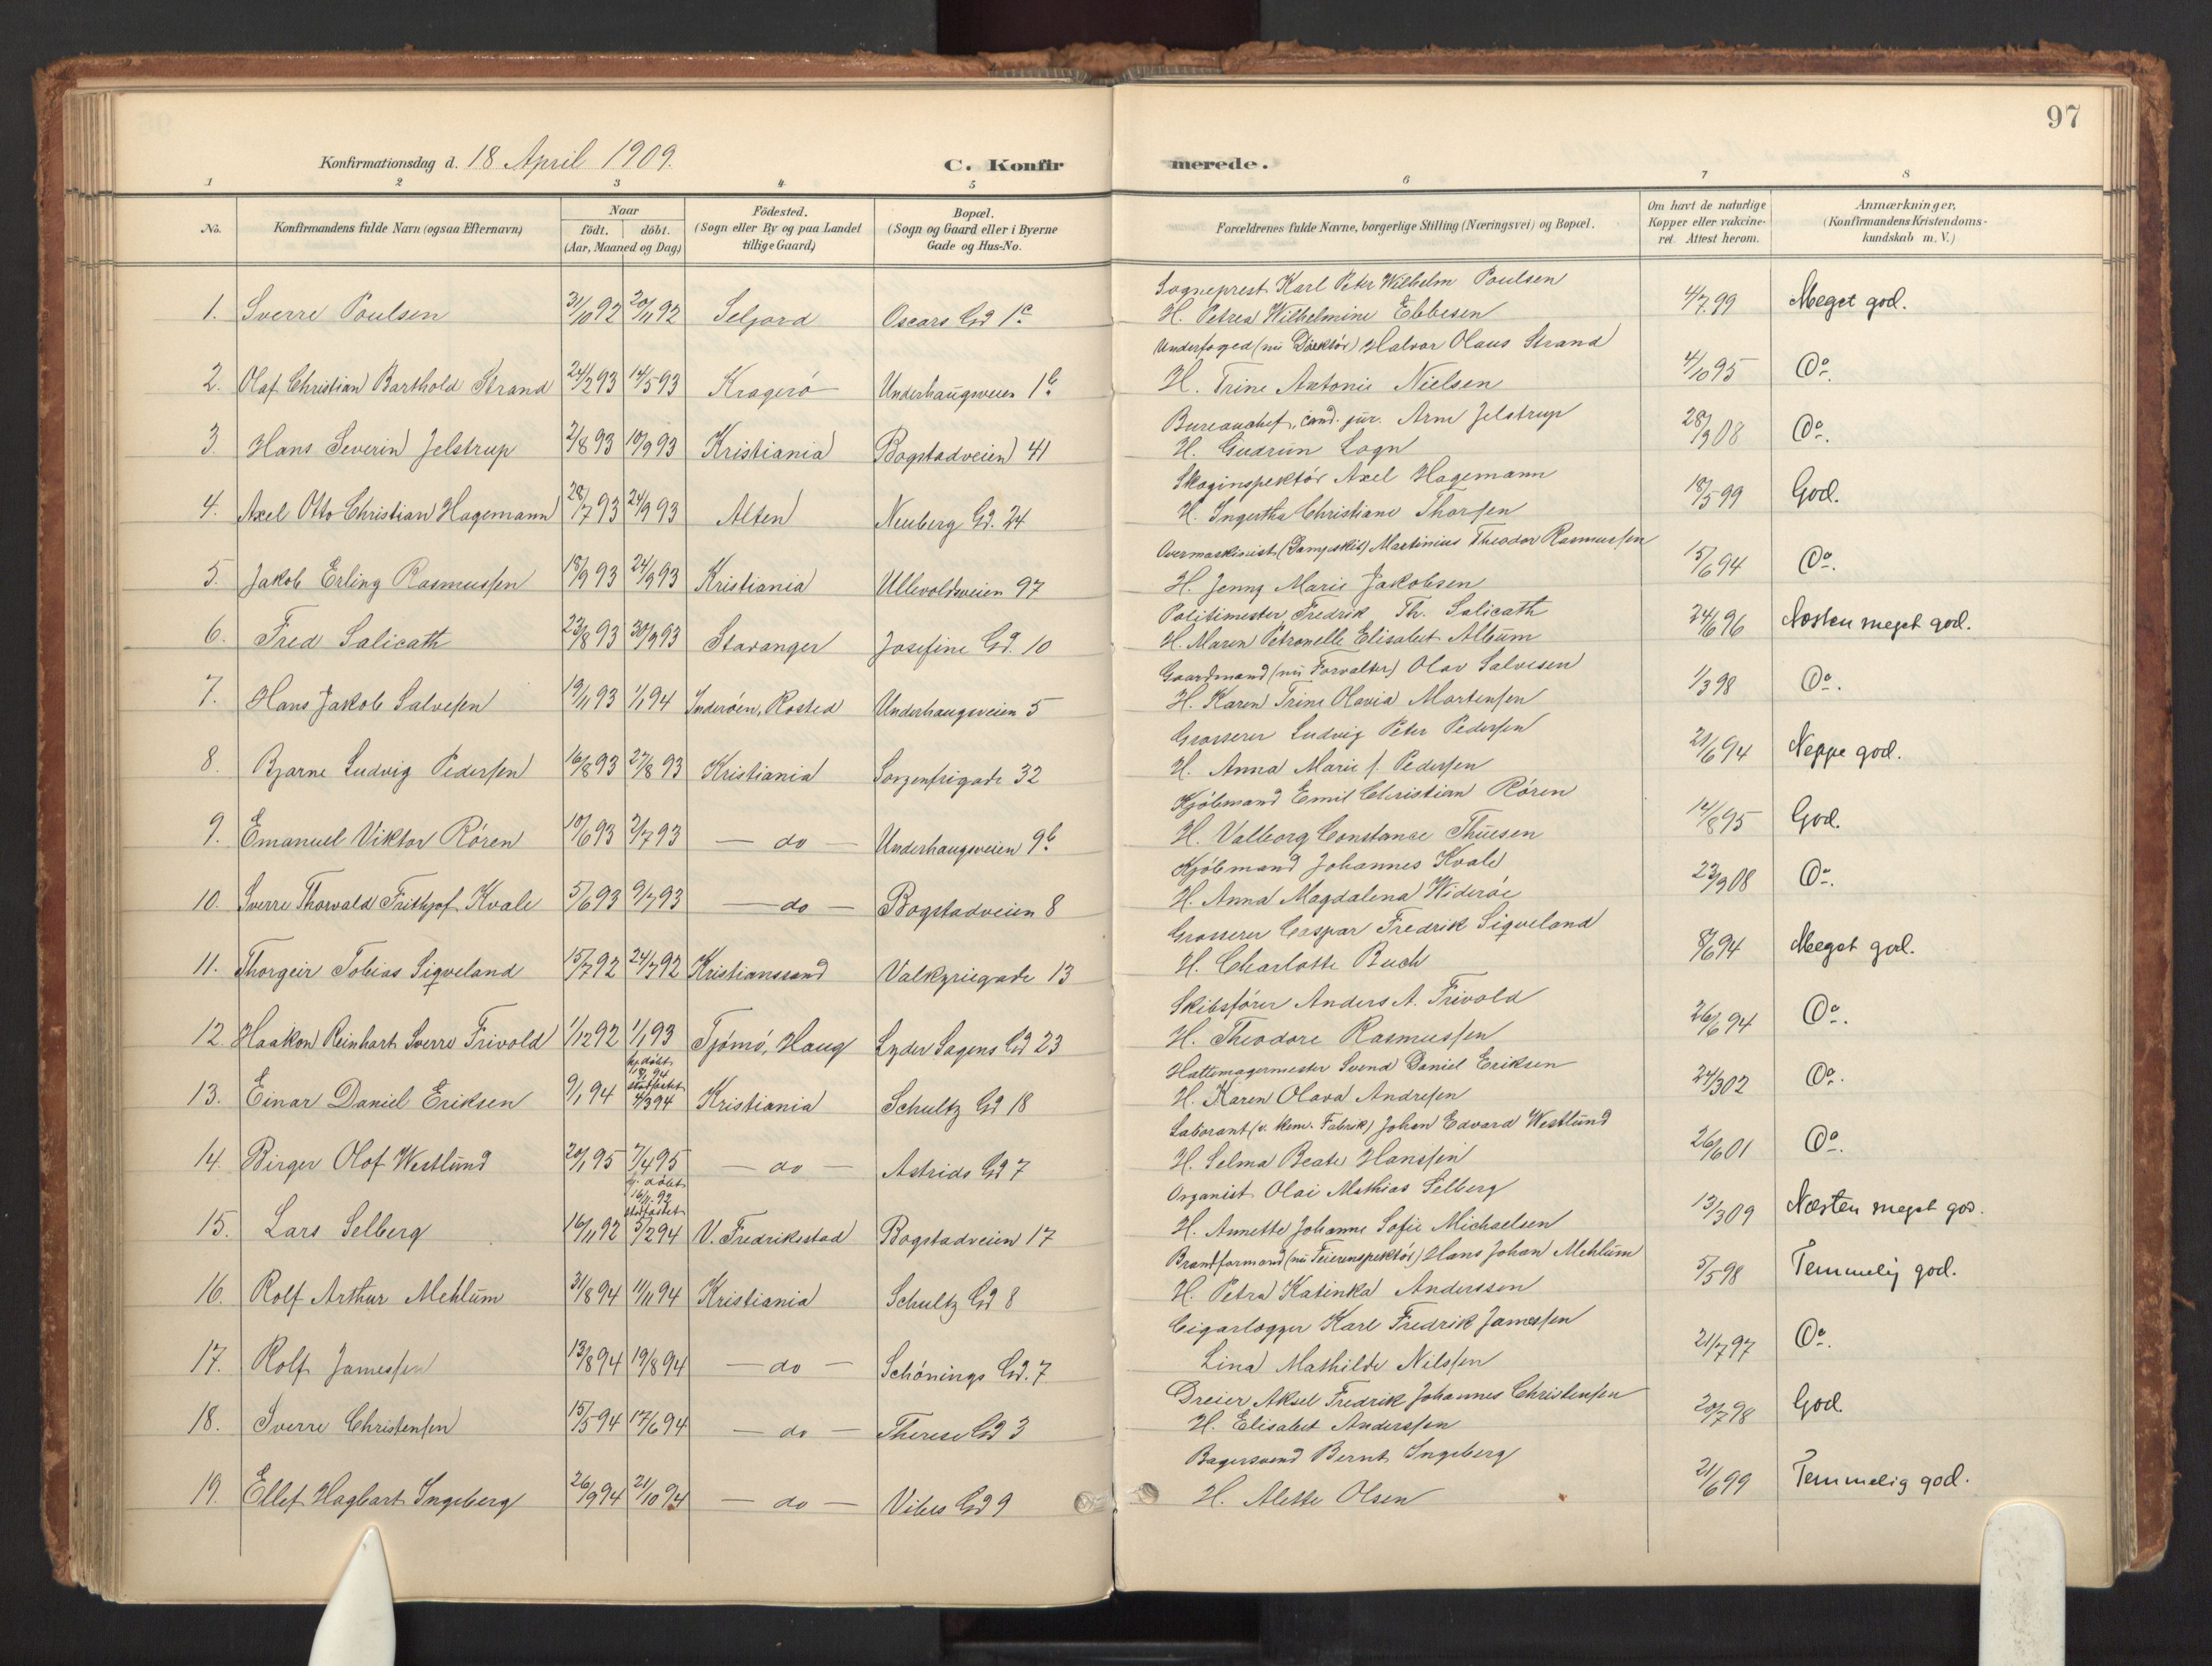 97
Konfirmationsdag d. 18 April 1909.
C. Konfirmerede.
1 2 3 4 5 6 7 8
No.
Konfirmandens fulde Navn (ogsaa Efternavn)
Naar
født. døbt.
(Aar, Maaned og Dag)
Fødested.
(Sogn eller By og paa Landet
tillige Gaard)
Bopæl.
(Sogn og Gaard eller i Byerne
Gade og Hus-No.
Forældrenes fulde Navne, borgerlige Stilling (Næringsvei) og Bopæl.
Om havt de naturlige
Kopper eller vakcine-
ret. Attest herom.
Anmærkninger,
(Konfirmandens Kristendoms-
kundskab m. V.)
Sogneprest Karl Peter Wilhelm Poulsen
1. Sverre Poulsen 31/10 92 20/11 92 Seljord Oscars Gd 1c H. Petrea Wilhelmine Ebbesen 4/7 99 Meget god.
Underfoged (nu Direktør) Halvor Olaus Strand
2. Olaf Christian Barthold Strand 24/2 93 14/5 93 Kragerø Underhaugsveien 1b H. Trine Antonie Nielsen 4/10 95 Do.
Bureauchef, cand. jur. Arne Jelstrup
3. Hans Severin Jelstrup 2/8 93 10/9 93 Kristiania Bogstadveien 41 H. Gudrun Logn 28/3 08 Do.
Skoginspektør Axel Hagemann
4. Axel Otto Christian Hagemann 28/7 93 24/9 93 Alten Neuberg Gd. 24 H. Ingertha Christiane Thorsen 18/5 99 God.
Overmaskinist (Dampskib) Martinius Theodor Rasmussen
5. Jakob Erling Rasmussen 18/9 93 24/9 93 Kristiania Ullevoldsveien 97 H. Jenny Marie Jakobsen 15/6 94 Do.
Politimester Fredrik Th. Salicath
6. Fred Salicath 23/8 93 30/9 93 Stavanger Josefine Gd. 10 H. Maren Petronelle Elisabet Album 24/6 96 Næsten meget god.
Gaardmand (nu Forvalter) Olav Salvesen
7. Hans Jakob Salvesen 19/11 93 1/1 94 Inderøen, Rosted Underhaugsveien 5 H. Karen Trine Olavia Martensen 1/3 98 Do.
Grosserer Ludvig Peter Pedersen
8. Bjarne Ludvig Pedersen 16/8 93 27/8 93 Kristiania Sorgenfrigade 32 H. Anna Marie f. Pedersen 21/6 94 Neppe god.
Kjøbmand Emil Christian Røren
9. Emanuel Viktor Røren 10/6 93 2/7 93 — do — Underhaugsveien 9b H. Valborg Constance Thuesen 14/8 95 God.
Kjøbmand Johannes Kvale
10. Sverre Thorvald Frithjof Kvale 5/6 93 9/7 93 — do — Bogstadveien 8 H. Anna Magdalena Widerøe 23/3 08 Do.
Grosserer Caspar Fredrik Siqveland
11. Thorgeir Tobias Siqveland 15/7 92 24/7 92 Kristianssand Valkyriegade 13 H. Charlotte Buch 8/6 94 Meget god.
Skibsfører Anders A. Frivold
12. Haakon Reinhart Sverre Frivold 1/12 92 1/1 93 Tjømø, Haug Lyder Sagens Gd 23 H. Theodore Rasmussen 26/6 94 Do.
Hattemagermester Svend Daniel Eriksen
13. Einar Daniel Eriksen 9/1 94 hj. døbt 18/1 94 stadfæstet 4/3 94 Kristiania Schultz Gd 18 H. Karen Olava Andresen 24/3 02 Do.
Laborant (v. kem. Fabrik) Johan Edvard Westlund
14. Birger Olof Westlund 20/1 95 7/4 95 — do — Astrids Gd 7 H. Selma Beate Hanssen 26/6 01 Do.
Organist Olai Mathias Selberg
15. Lars Selberg 16/11 92 hj. døbt 16/11 92 stadfæstet 5/2 94 V. Fredrikstad Bogstadveien 17 H. Annette Johanne Sofie Michaelsen 13/3 09 Næsten meget god.
Brandformand (nu Feierinspektør) Hans Johan Mehlum
16. Rolf Arthur Mehlum 31/8 94 11/11 94 Kristiania Schultz Gd 8 H. Petra Katinka Anderssen 5/5 98 Temmelig god.
Cigarlogger Karl Fredrik Jamessen
17. Rolf Jamessen 13/8 94 19/8 94 — do — Schønings Gd. 7 Lina Mathilde Nilssen 21/7 97 Do.
Dreier Aksel Fredrik Johannes Christensen
18. Sverre Christensen 15/5 94 17/6 94 — do — Therese Gd 3 H. Elisabet Anderssen 20/7 98 God.
Bagersvend Bernt Ingeberg
19. Ellef Hagbart Ingeberg 26/9 94 21/10 94 — do — Vibes Gd 9 H. Alette Olsen 21/6 99 Temmelig god.